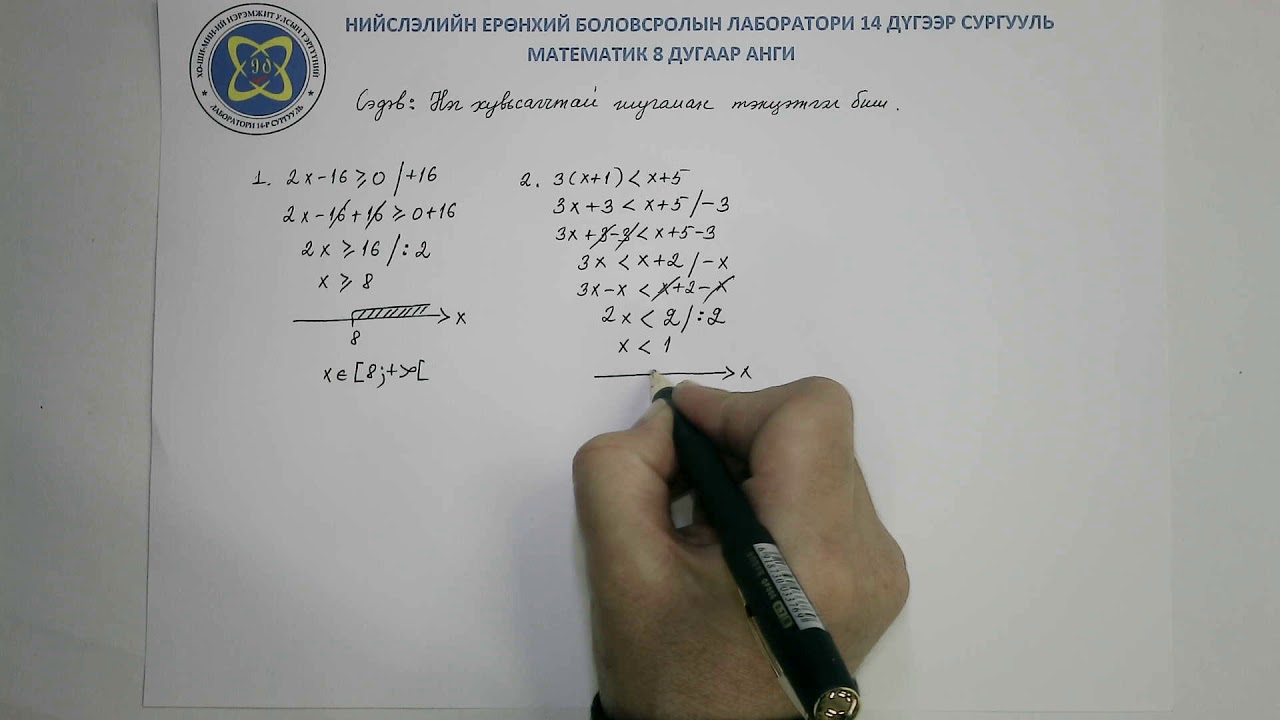 НИЙСЛЭЛИЙН ЕРӨНХИЙ БОЛОВСРОЛЫН ЛАБОРАТОРИ 14 ДҮГЭЭР СУРГУУЛЬ
МАТЕМАТИК 8 ДУГААР АНГИ
ХО-ШИ-МИН-ИЙ НЭРЭМЖИТ УЛСЫН ТЭРГҮҮНИЙ
ЛАБОРАТОРИ 14-Р СУРГУУЛЬ
Сэдэв: Нэг хувьсагчтай шугаман тэнцэтгэл биш.
1. 2x-16⩾0 /+16
2x-16+16⩾0+16
2x⩾16 /:2
x⩾8
x
8
x∈[8;+∞[
2. 3(x+1)<x+5
3x+3<x+5 /-3
3x+3-3<x+5-3
3x<x+2 /-x
3x-x<x+2-x
2x<2 /:2
x<1
x